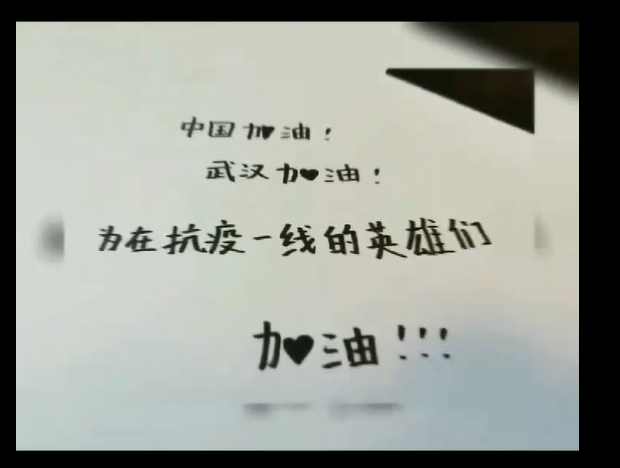 中国加油!
武汉加油!
为在抗疫一线的英雄们
加油!!!